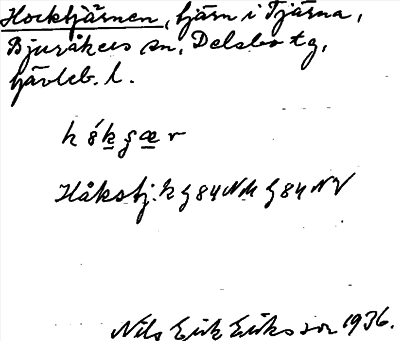 Hocktjärnen, tjärn i Tjärna,
Bjuråkers sn, Delsbo tg,
Gävleb. l.
Håkstj. k g 84 NM g 84 NV
Nils Erik Eriksson 1936.